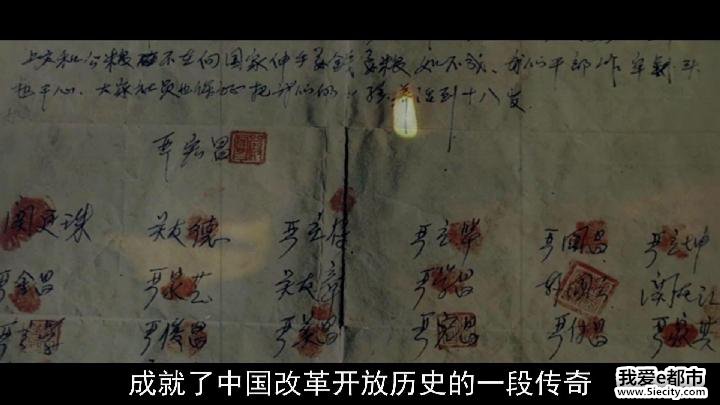 上交和公粮 不在向国家伸手要钱要粮 如不成、我们干部作牢刹头
也干心、大家社员也保证把我们的小孩养活到十八岁
严宏昌
关廷珠 关友德 严立符 严立华 严国昌 严立坤
严金昌 严家芝 关友章 严学昌 韩国云 关友江
严立学 严俊昌 严美昌 严宏昌 严付昌 严家其
成就了中国改革开放历史的一段传奇
我爱e都市
www.5iecity.com